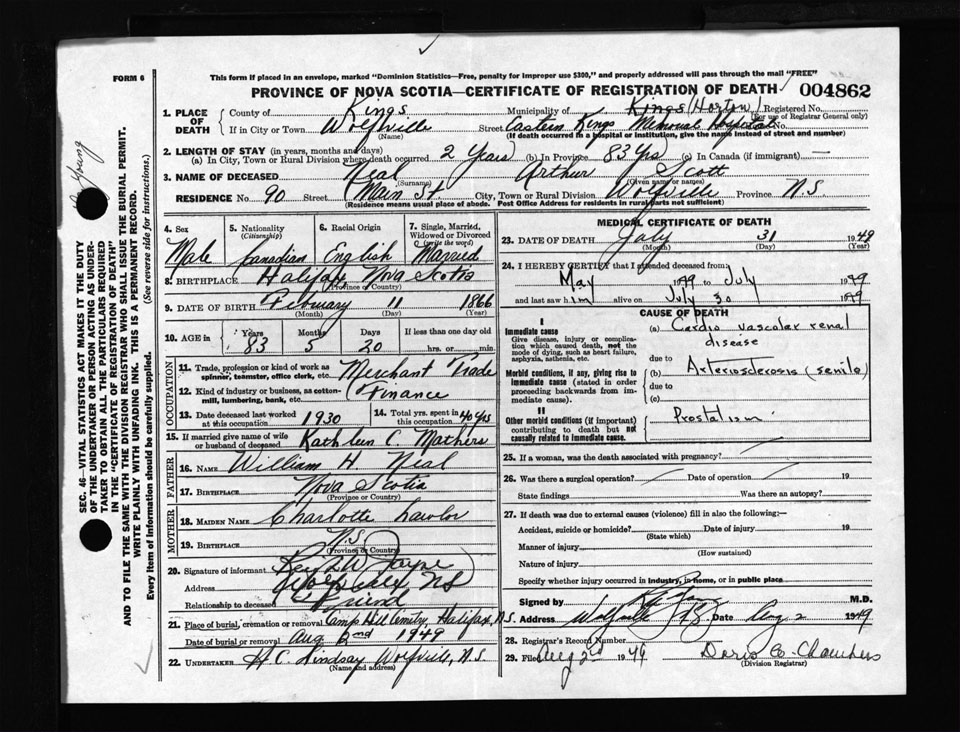 FORM 6
This form if placed in an envelope, marked "Dominion Statistics—Free, penalty for improper use $300," and properly addressed will pass through the mail "FREE"
PROVINCE OF NOVA SCOTIA—CERTIFICATE OF REGISTRATION OF DEATH 004862
1. PLACE OF DEATH County of Kings Municipality of Kings (Horton) Registered No.
(For use of Registrar General only)
If in City or Town Wolfville Street Eastern Kings Memorial Hospital No.
(Name) (If death occurred in a hospital or institution, give the name instead of street and number)
2. LENGTH OF STAY (in years, months and days)
(a) In City, Town or Rural Division where death occurred 2 Years (b) In Province 83 Yrs (c) In Canada (if immigrant) —
3. NAME OF DECEASED Neal Arthur Scott
(Surname) (Given name or names)
RESIDENCE No. 90 Street Main St. City, Town or Rural Division Wolfville Province N.S
(Residence means usual place of abode. Post Office Address for residents in rural parts not sufficient)
4. Sex Male
5. Nationality (Citizenship) Canadian
6. Racial Origin English
7. Single, Married, Widowed or Divorced (write the word) Married
8. BIRTHPLACE Halifax Nova Scotia
(Province or Country)
9. DATE OF BIRTH February 11 1866
(Month) (Day) (Year)
10. AGE in Years 83 Months 5 Days 20 If less than one day old hrs. or min.
OCCUPATION
11. Trade, profession or kind of work as spinner, teamster, office clerk, etc. Merchant Trade
12. Kind of industry or business, as cotton-mill, lumbering, bank, etc. Finance
13. Date deceased last worked at this occupation 1930 14. Total yrs. spent in this occupation 40 yrs
15. If married give name of wife or husband of deceased Kathleen C. Mathers
FATHER
16. NAME William H. Neal
17. BIRTHPLACE Nova Scotia
(Province or Country)
MOTHER
18. MAIDEN NAME Charlotte Lawlor
19. BIRTHPLACE N.S
(Province or Country)
20. Signature of informant
Address Wolfville, NS
Relationship to deceased Friend
21. Place of burial, cremation or removal Camp Hill Cemetry, Halifax, N.S.
Date of burial or removal Aug 2nd 1949
22. UNDERTAKER H.C. Lindsay Wolfville, N.S.
(Name and address)
MEDICAL CERTIFICATE OF DEATH
23. DATE OF DEATH July 31 1949
(Month) (Day) (Year)
24. I HEREBY CERTIFY that I attended deceased from
May 1949 to July 1949
and last saw him alive on July 30 1949
CAUSE OF DEATH
I
Immediate cause
Give disease, injury or complication which caused death, not the mode of dying, such as heart failure, asphyxia, asthenia, etc.
(a) Cardio vascular renal
disease
due to
Morbid conditions, if any, giving rise to immediate cause (stated in order proceeding backwards from immediate).
(b) Arteriosclerosis (senile)
due to
(c)
II
Other morbid conditions (if important) contributing to death but not causally related to immediate cause.
Prostatism
25. If a woman, was the death associated with pregnancy?
26. Was there a surgical operation? Date of operation 19
State findings Was there an autopsy?
27. If death was due to external causes (violence) fill in also the following:—
Accident, suicide or homicide? Date of injury 19
(State which)
Manner of injury
(How sustained)
Nature of injury
Specify whether injury occurred in industry, in home, or in public place
Signed by M.D.
Address Wolfville N.S. Date Aug 2 1949
28. Registrar's Record Number
29. Filed Aug 2nd 1949 Doris E. Chambers
(Division Registrar)
SEC. 46—VITAL STATISTICS ACT MAKES IT THE DUTY
OF THE UNDERTAKER OR PERSON ACTING AS UNDER-
TAKER TO OBTAIN ALL THE PARTICULARS REQUIRED
IN THE "CERTIFICATE OF REGISTRATION OF DEATH"
AND TO FILE THE SAME WITH THE DIVISION REGISTRAR WHO SHALL ISSUE THE BURIAL PERMIT.
WRITE PLAINLY WITH UNFADING INK. THIS IS A PERMANENT RECORD.
Every item of information should be carefully supplied. (See reverse side for instructions.)
Young